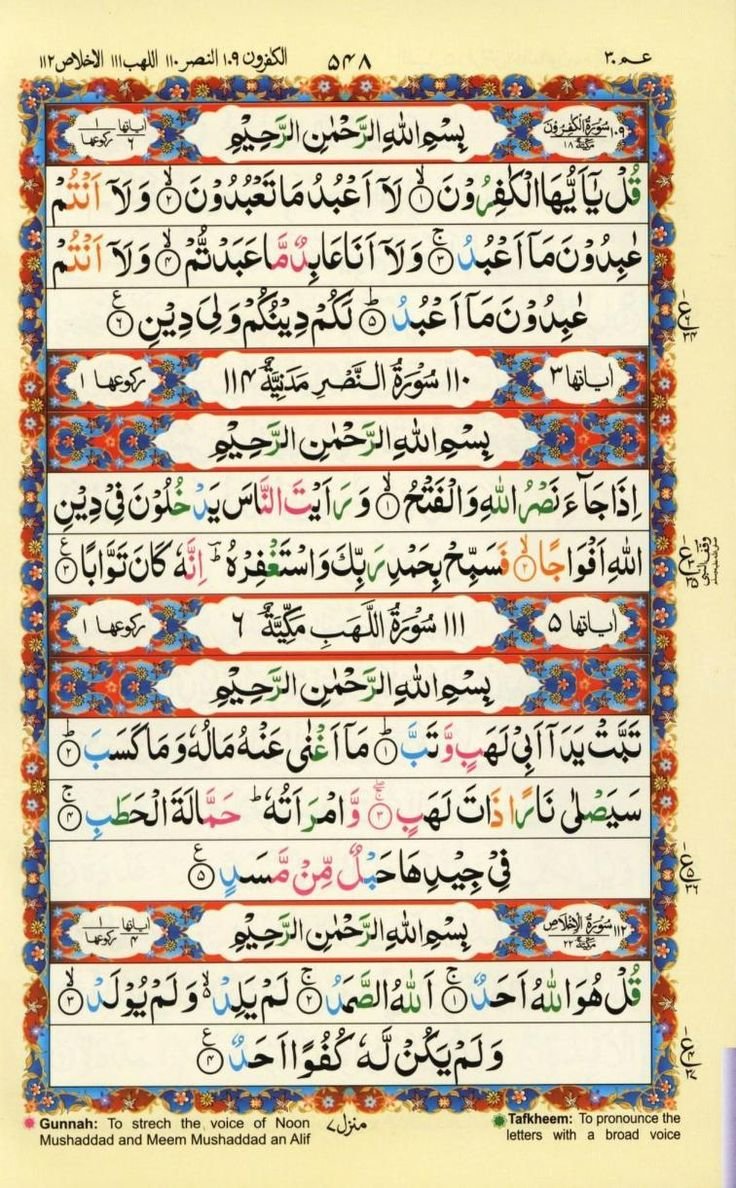 عـم ٣٠ ۵۴۸ الكفرون ١٠٩ النصر ١١٠ اللهب ١١١ الاخلاص ١١٢
١٠٩ سُوْرَةُ الْكٰفِرُوْنَ مَكِّيَّةٌ ١٨ بِسْمِ اللهِ الرَّحْمٰنِ الرَّحِيْمِ اٰيَاتُهَا ٦ رُكُوْعُهَا ١
قُلْ يٰۤاَيُّهَا الْكٰفِرُوْنَ ۙ﴿١﴾ لَاۤ اَعْبُدُ مَا تَعْبُدُوْنَ ۙ﴿٢﴾ وَ لَاۤ اَنْتُمْ
عٰبِدُوْنَ مَاۤ اَعْبُدُ ۚ﴿٣﴾ وَ لَاۤ اَنَا عَابِدٌ مَّا عَبَدْتُّمْ ۙ﴿۴﴾ وَ لَاۤ اَنْتُمْ
عٰبِدُوْنَ مَاۤ اَعْبُدُ ؕ﴿۵﴾ لَكُمْ دِيْنُكُمْ وَلِيَ دِيْنِ ﴿٦﴾ ع
اٰيَاتُهَا ٣ ١١٠ سُوْرَةُ النَّصْرِ مَدَنِيَّةٌ ١١۴ رُكُوْعُهَا ١
بِسْمِ اللهِ الرَّحْمٰنِ الرَّحِيْمِ
اِذَا جَآءَ نَصْرُ اللهِ وَ الْفَتْحُ ۙ﴿١﴾ وَ رَاَيْتَ النَّاسَ يَدْخُلُوْنَ فِيْ دِيْنِ
اللهِ اَفْوَاجًا ۙ﴿٢﴾ فَسَبِّحْ بِحَمْدِ رَبِّكَ وَاسْتَغْفِرْهُ ؕ اِنَّهٗ كَانَ تَوَّابًا ﴿٣﴾ ع
اٰيَاتُهَا ۵ ١١١ سُوْرَةُ اللَّهَبِ مَكِّيَّةٌ ٦ رُكُوْعُهَا ١
بِسْمِ اللهِ الرَّحْمٰنِ الرَّحِيْمِ
تَبَّتْ يَدَاۤ اَبِيْ لَهَبٍ وَّ تَبَّ ؕ﴿١﴾ مَاۤ اَغْنٰى عَنْهُ مَالُهٗ وَ مَا كَسَبَ ؕ﴿٢﴾
سَيَصْلٰى نَارًا ذَاتَ لَهَبٍ ۚۖ﴿٣﴾ وَّ امْرَاَتُهٗ ؕ حَمَّالَةَ الْحَطَبِ ۚ﴿۴﴾
فِيْ جِيْدِهَا حَبْلٌ مِّنْ مَّسَدٍ ﴿۵﴾ ع
١١٢ سُوْرَةُ الْاِخْلَاصِ مَكِّيَّةٌ ٢٢ بِسْمِ اللهِ الرَّحْمٰنِ الرَّحِيْمِ اٰيَاتُهَا ۴ رُكُوْعُهَا ١
قُلْ هُوَ اللهُ اَحَدٌ ۚ﴿١﴾ اَللهُ الصَّمَدُ ۚ﴿٢﴾ لَمْ يَلِدْ ۙ وَ لَمْ يُوْلَدْ ۙ﴿٣﴾
وَ لَمْ يَكُنْ لَّهٗ كُفُوًا اَحَدٌ ﴿۴﴾ ع
Gunnah: To strech the voice of Noon
Mushaddad and Meem Mushaddad an Alif
منزل ٧
Tafkheem: To pronounce the
letters with a broad voice